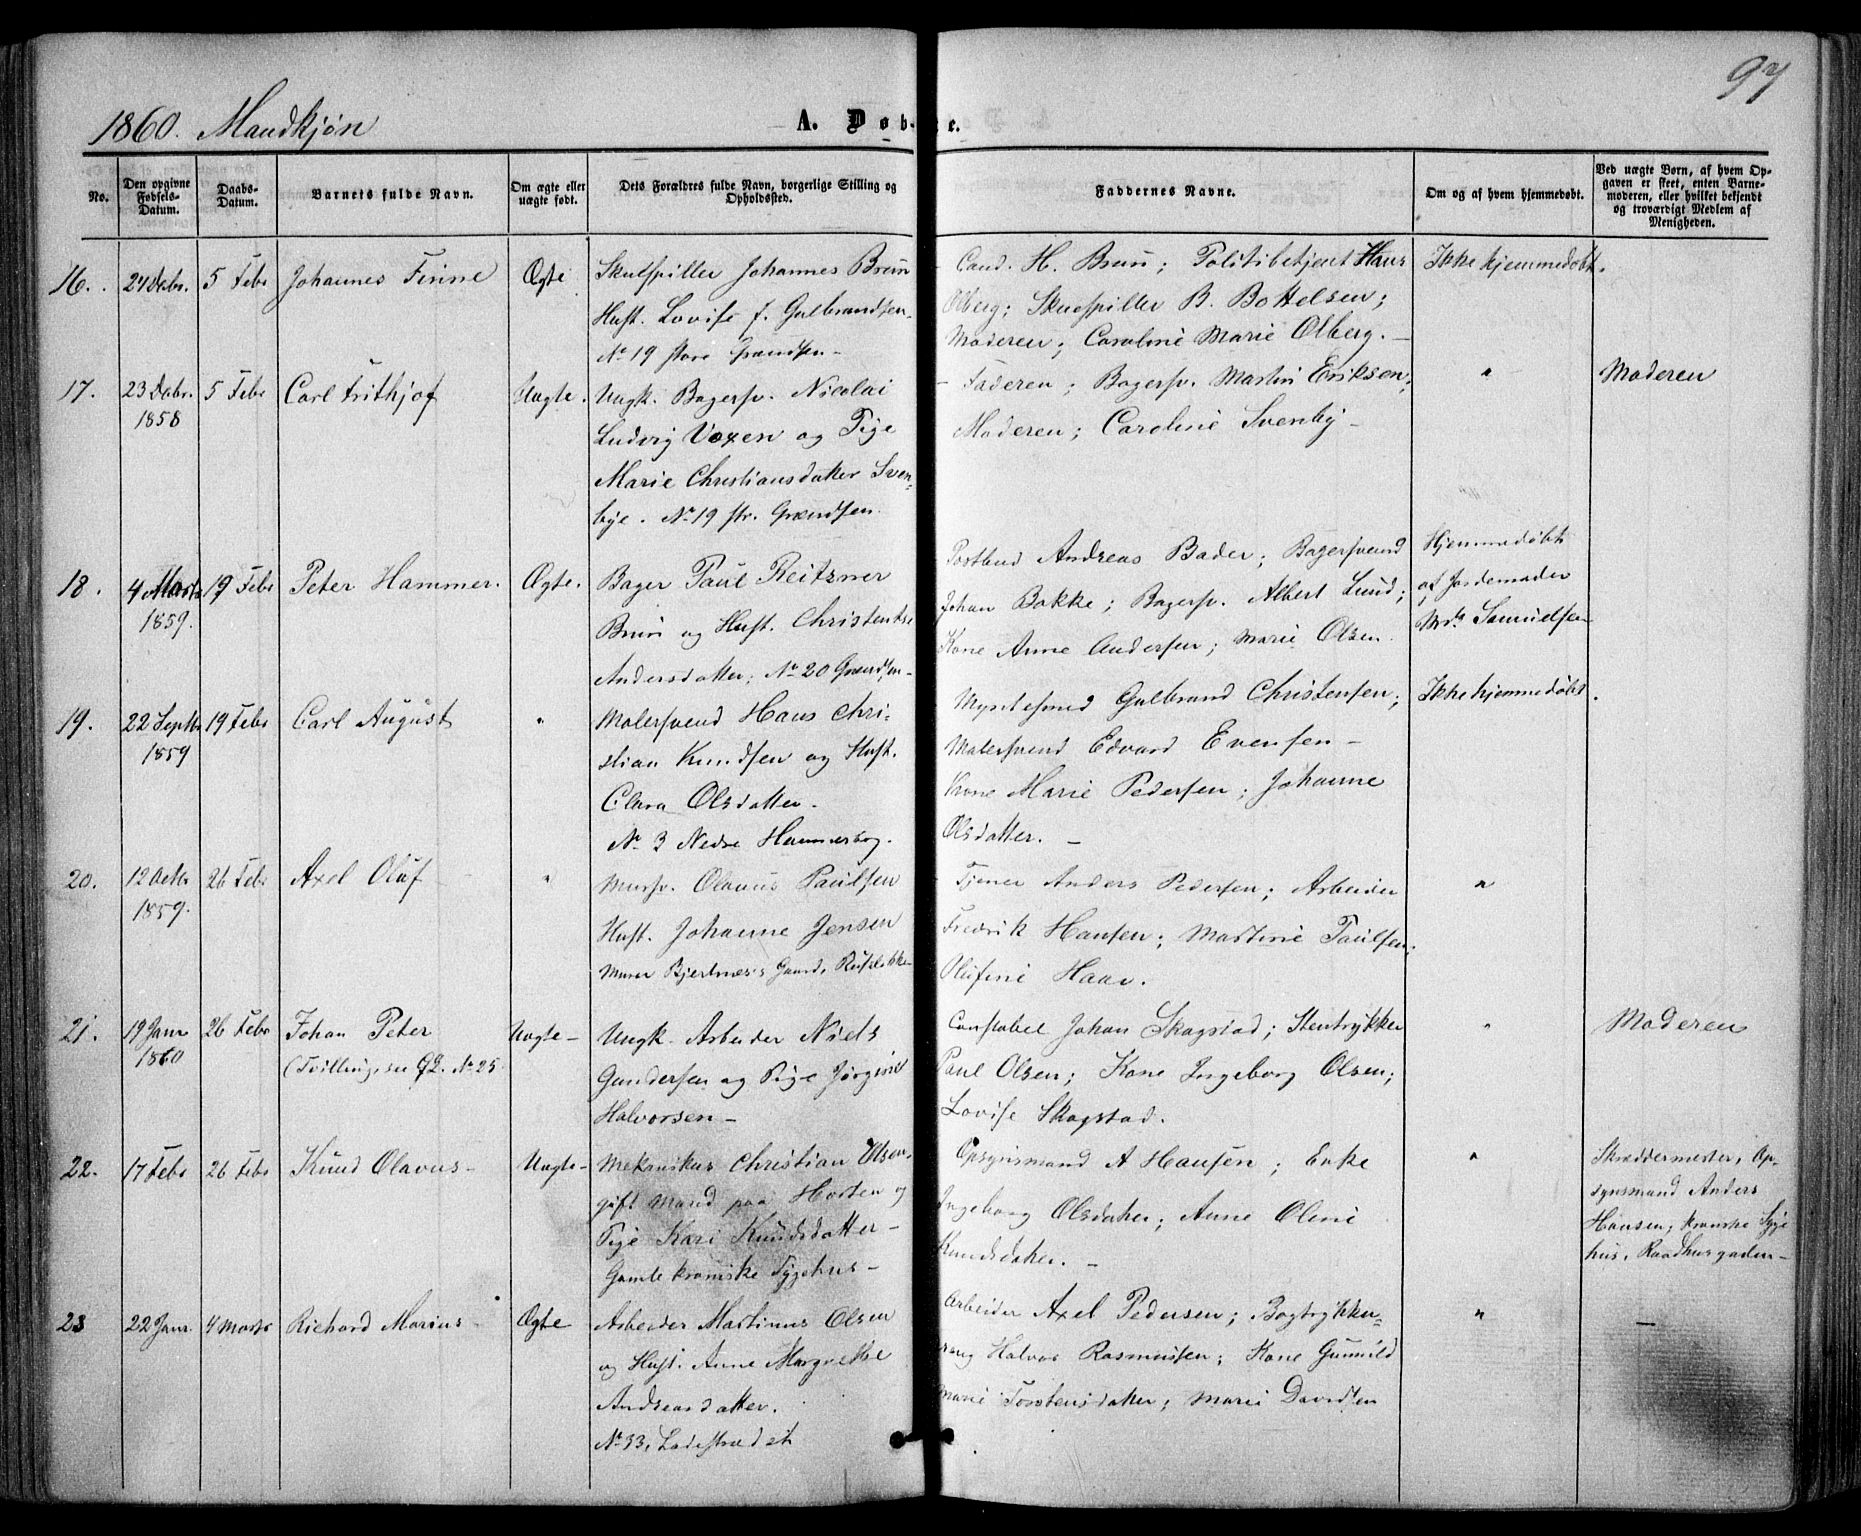 97
1860. Mandkjøn
A. Døb- te.
No.
Den opgivne Fødsels-Datum.
Daabs-Datum.
Barnets fulde Navn.
Om ægte eller uægte født.
Dets Forældres fulde Navn, borgerlige Stilling og Opholdssted.
Faddernes Navne.
Om og af hvem hjemmedøbt.
Ved uægte Børn, af hvem Opgaven er skeet, enten Barnemoderen, eller hvilket bekjendt og troværdigt Medlem af Menigheden.
16. 24 Debr. 5 Febr Johannes Finne Ægte
Skuespiller Johannes Brun
Hust. Lovise f. Gulbrandsen
No 19 store Grændsen
Cand. H. Brun; Politibetjent Hans
Olberg; Skuespiller B. Bottelsen;
Moderen; Caroline Marie Olberg.
Ikke hjemmedøbt.
17. 23 Debr. 1858 5 Febr Carl Frithjof Uægte.
Ungk. Bagersv. Nicolai
Ludvig Voxen og Pige
Marie Christiansdatter Sven-
bye. No 19 str. Grændsen
Faderen; Bagersv. Martin Eriksen;
Moderen; Caroline Svenby
"
Moderen
18. 4 Marts 1859. 19 Febr Peter Hammer. Ægte.
Bager Paul Reitzner
Brun og Hust. Christentse
Andersdatter; No 20 Grændsen
Postbud Andreas Bader; Bagersvend
Johan Bakke; Bagersv. Albert Lund;
Kone Anne Andersen; Marie Olsen.
Hjemmedøbt
af Jordemoder
Md. Samuelsen
19. 22 Septbr 1859 19 Febr Carl August "
Malersvend Hans Chri-
stian Knudsen og Hust.
Clara Olsdatter.
No 3 Nedre Hammersbog.
Myntesmed Gulbrand Christensen;
Malersvend Edvard Evensen
Kone Marie Pedersen; Johanne
Olsdatter.
Ikke hjemmedøbt.
20. 12 Octbr 1859. 26 Febr Axel Oluf "
Mursv. Olavus Paulsen
Hust. Johanne Jensen
Murer Bjertnæs's Gaard, Ruseløkke
Tjener Anders Pedersen; Arbeider
Fredrik Hansen; Martine Paulsen;
Olefine Haar.
"
21. 19 Janr 1860 26 Febr Johan Peter
(Tvilling, see Qk. No 25. Uægte
Ungk. Arbeider Niels
Gundersen og Pige Jørgine
Halvorsen
Constabel Johan Skagstad; Stentrykker
Paul Olsen; Kone Ingeborg Olsen;
Lovise Skagstad.
"
Moderen
22. 17 Febr 26 Febr Knud Olavus Uægte
Mekanikus Christian Olsen,
gift Mand paa Horten og
Pige Kari Knudsdatter
Gamle kramske Sygehus
Opsynsmand A Hansen; Enke
Ingeborg Olsdatter; Anne Oline
Knudsdatter.
"
Skræddermester, Op-
synsmand Anders
Hansen, kramske Syge
hus, Raadhusgaden
23 22 Janr. 4 Marts Richard Marius Ægte
Arbeider Martinus Olsen
og Hust. Anne Margrethe
Andreasdatter.
No 33, Ladestrædet
Arbeider Axel Pedersen; Bogtrykker-
Halvor Rasmussen; Kone Gunnild
Marie Torstensdatter; Marie Davidsen
"